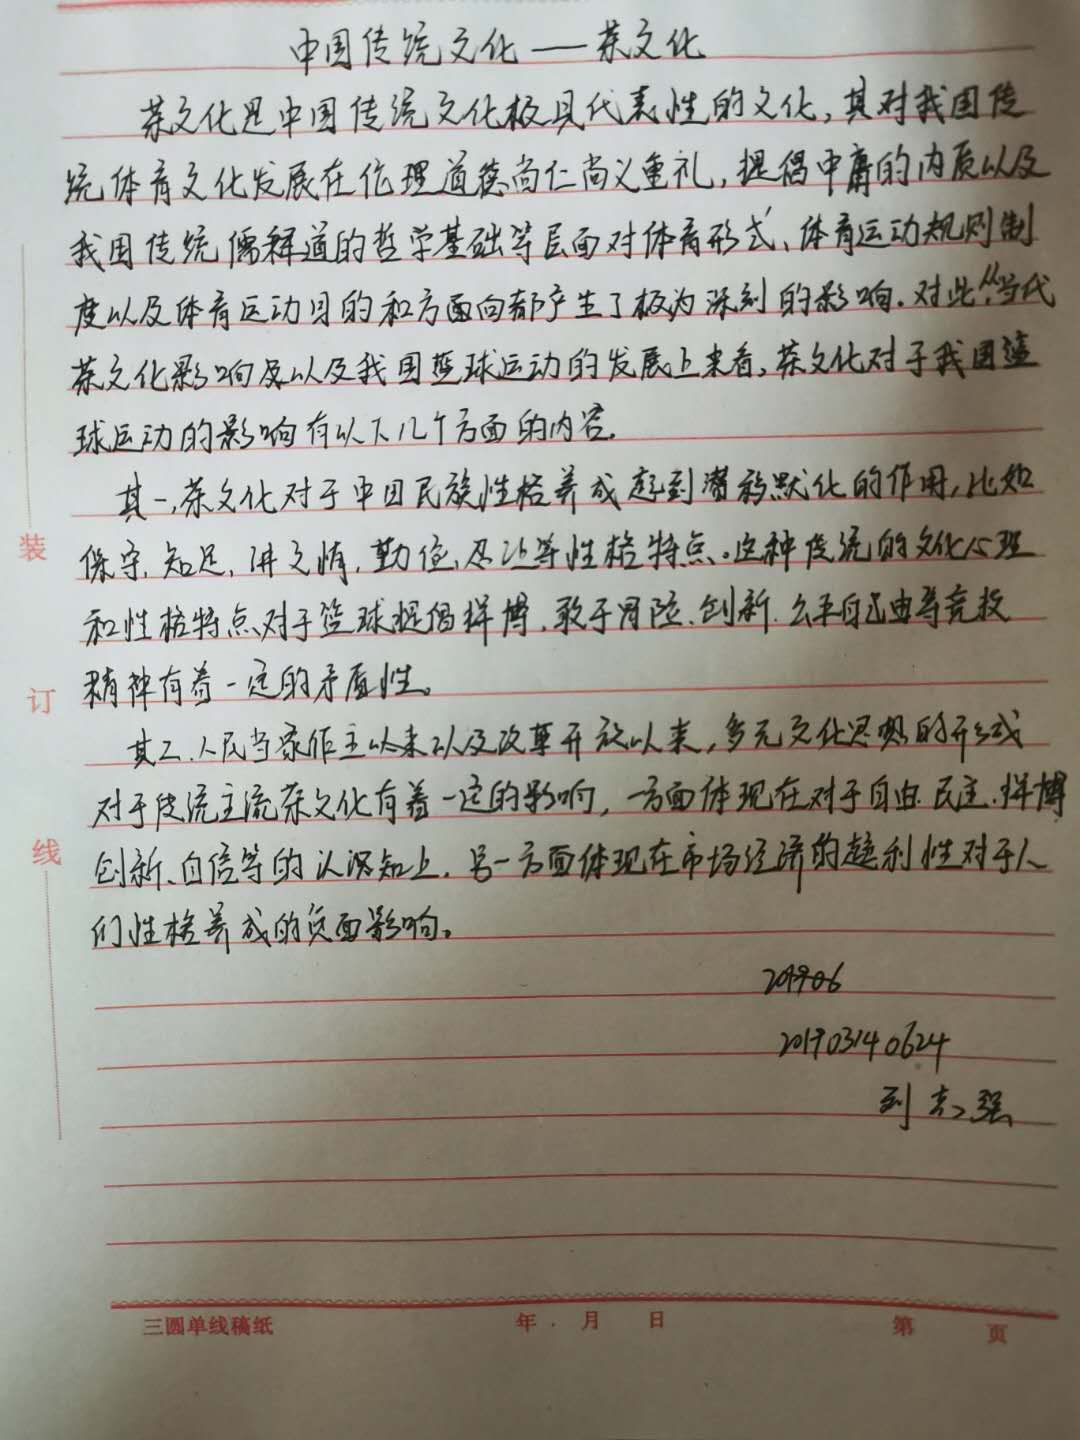 中国传统文化——茶文化
茶文化是中国传统文化极具代表性的文化,其对我国传
统体育文化发展在伦理道德尚仁尚义重礼,提倡中庸的内质以及
我国传统儒释道的哲学基础等层面对体育形式、体育运动规则制
度以及体育运动目的和方面向都产生了极为深刻的影响.对此“当代
茶文化影响及以及我国篮球运动的发展上来看,茶文化对于我国篮
球运动的影响有以下几个方面的内容.
其一,茶文化对于中国民族性格养成起到潜移默化的作用,比如
保守、知足、讲文情,勤俭、忍让等性格特点.这种传统的文化心理
和性格特点对于篮球提倡拼搏、敢于冒险、创新、公平自由等竞技
精神有着一定的矛盾性。
其二、人民当家作主以来以及改革开放以来,多元文化思想的形成
对于传统主流茶文化有着一定的影响,一方面体现在对于自由、民主、拼博
创新、自信等的认识知上,另一方面体现在市场经济的趋利性对于人
们性格养成的负面影响。
201903140624
刘志强
装
订
线
三圆单线稿纸
年 月 日
第 页